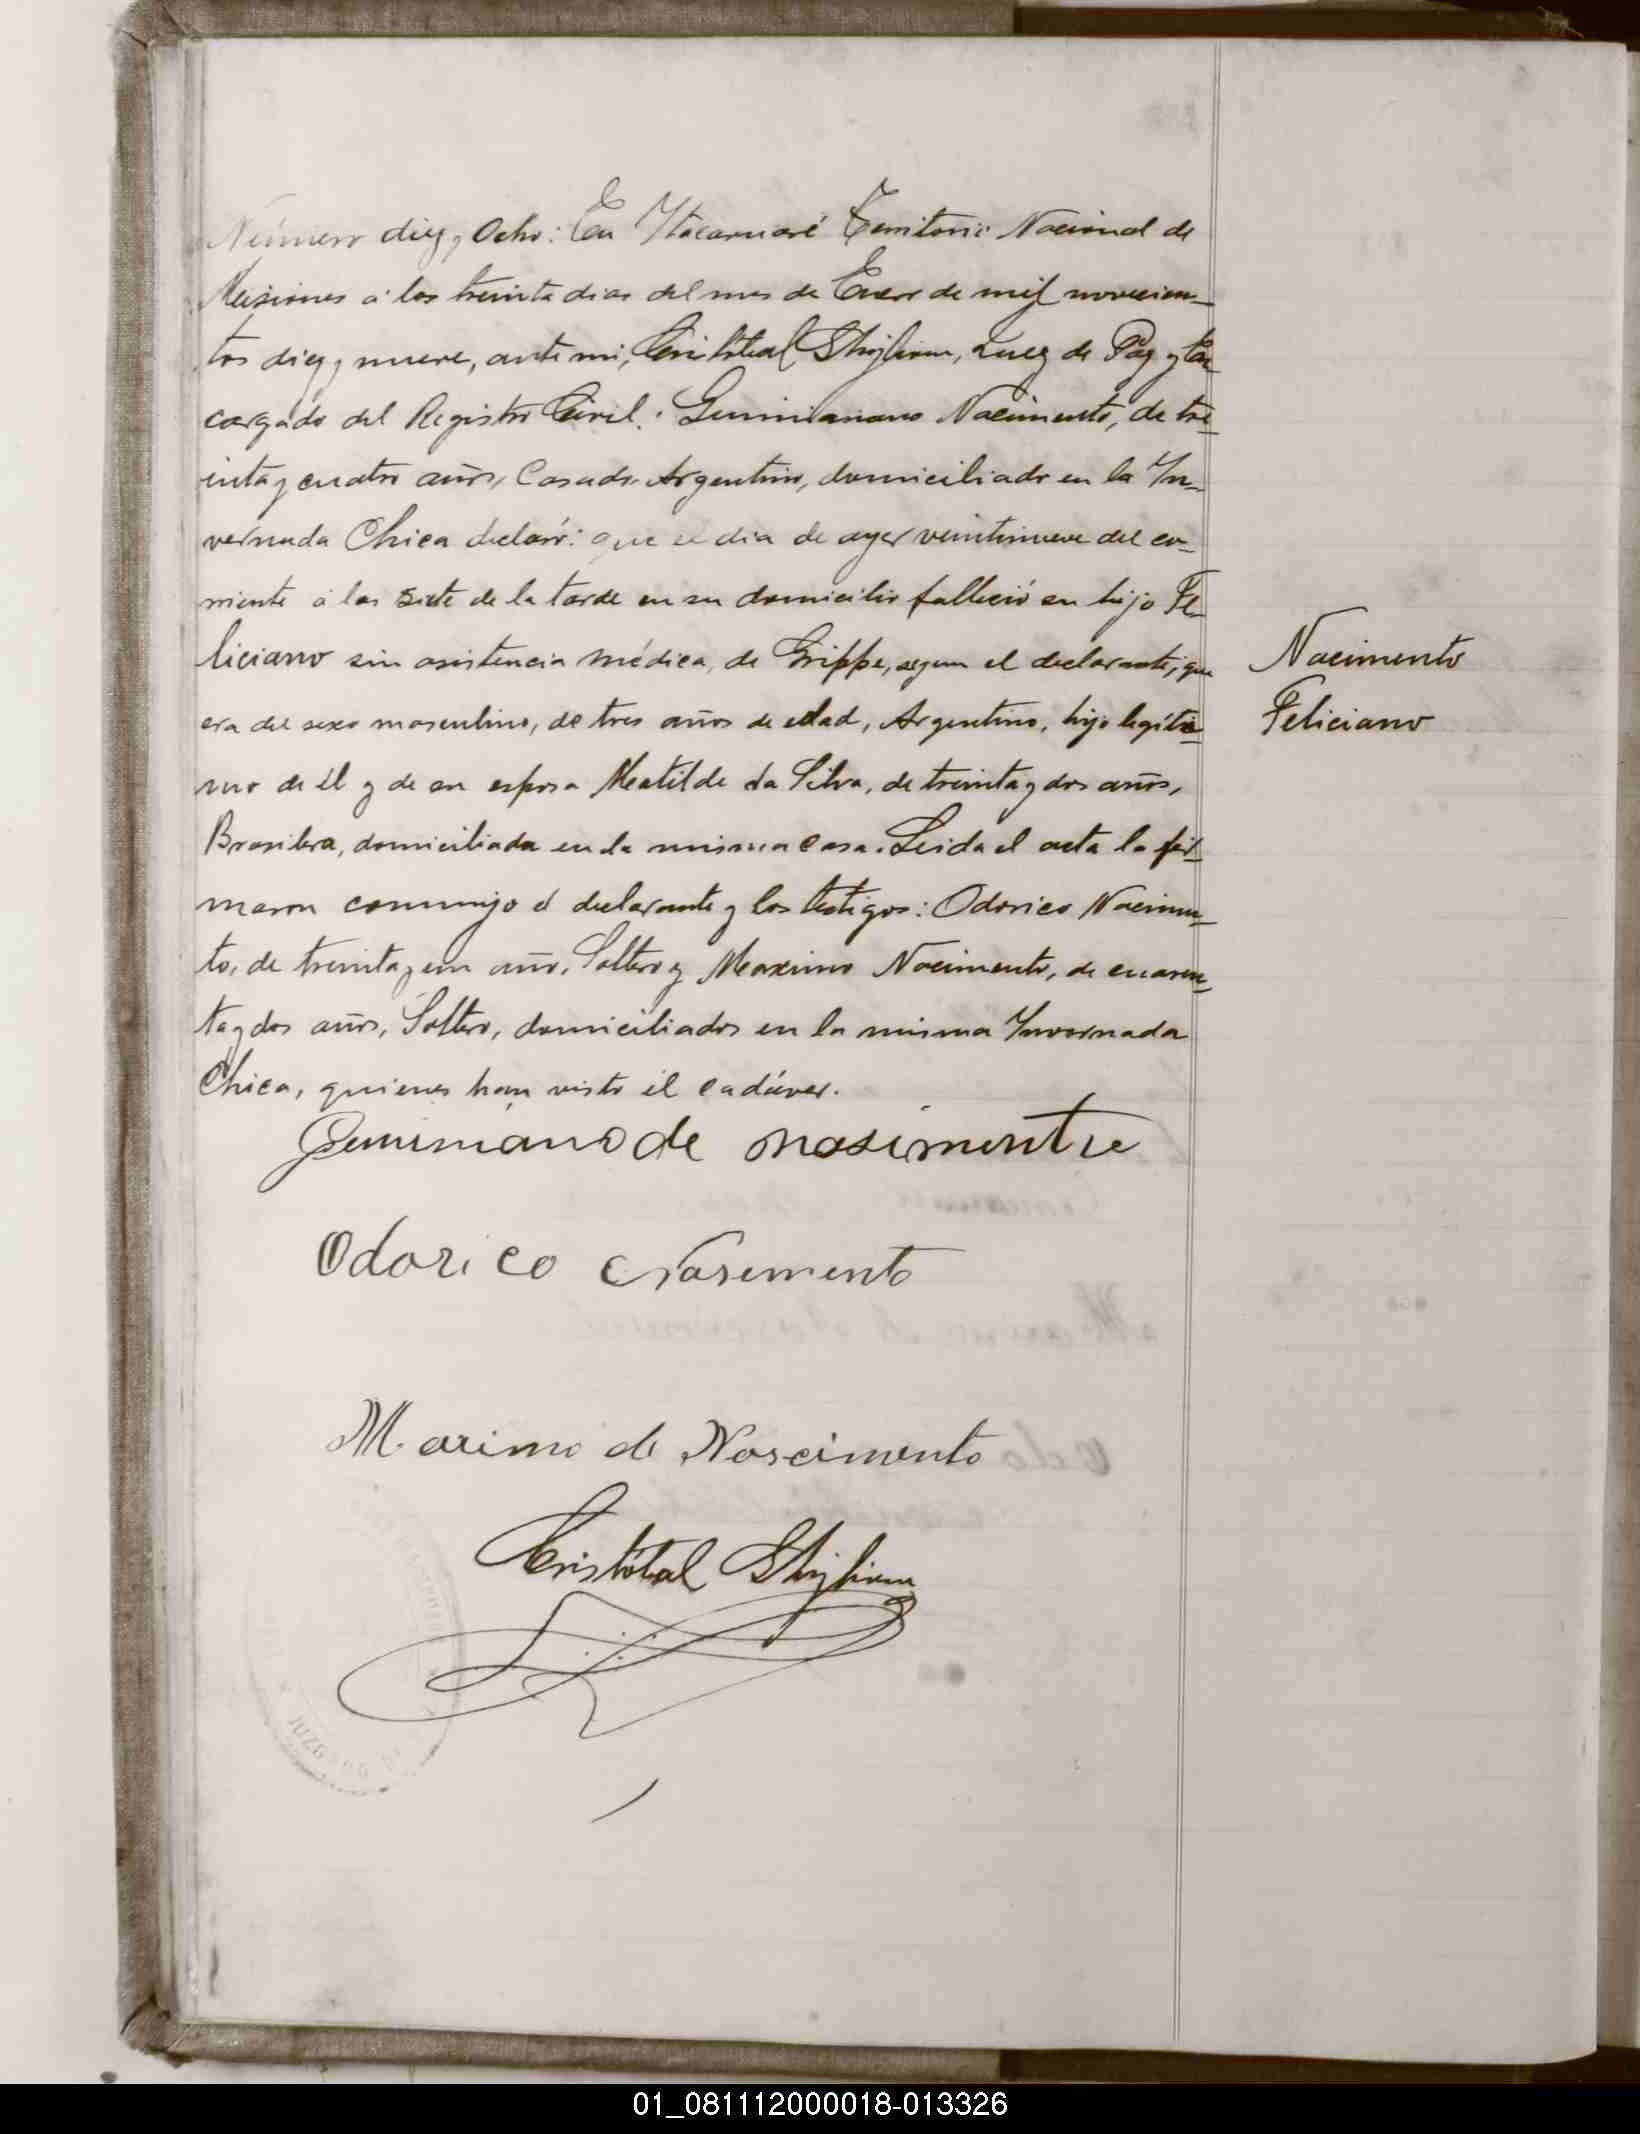 Número diez y Ocho: En Itacaruaré Territorio Nacional de
Misiones á los treinta dias del mes de Enero de mil novecien-
tos diez y nueve, ante mi, Cristóbal Ghiglione, Juez de Paz y En-
cargado del Registro Civil. Geminianano Nacimento, de tre-
inta y cuatro años, Casado, Argentino, domiciliado en la In-
vernada Chica declaró: que el dia de ayer veintinueve del co-
rriente á las siete de la tarde en su domicilio falleció su hijo Fe-
liciano sin asistencia médica, de Grippe, segun el declarante; que
era del sexo masculino, de tres años de edad, Argentino, hijo legíti-
mo de él y de su esposa Matilde da Silva, de treinta y dos años,
Brasilera, domiciliada en la misma casa. Leida el acta la fir-
maron conmigo el declarante y los testigos: Odorico Nacimen-
to, de treinta y un año, Soltero y Maximo Nacimento, de cuaren-
ta y dos años, Soltero, domiciliados en la misma Invernada
Chica, quienes han visto el cadáver.
Nacimento
Feliciano
Geminiano de nasimentre
Odorico Nasemento
Maximo de Nascimento
Cristóbal Ghiglione
JUZGADO
01_081112000018-013326